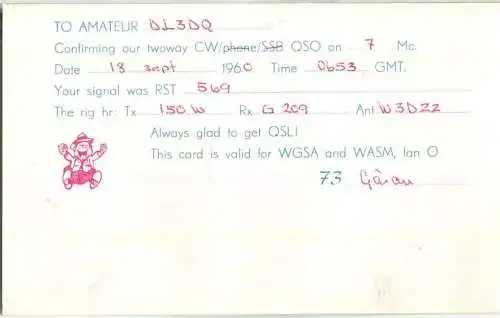 TO AMATEUR DL3DQ
Confirming our twoway CW/phone/SSB QSO on 7 Mc.
Date 18 sept 1960 Time 0653 GMT.
Your signal was RST 569
The rig hr: Tx 150 W Rx G 209 Ant. W3DZZ
Always glad to get QSL!
This card is valid for WGSA and WASM, lan O
73 Göran